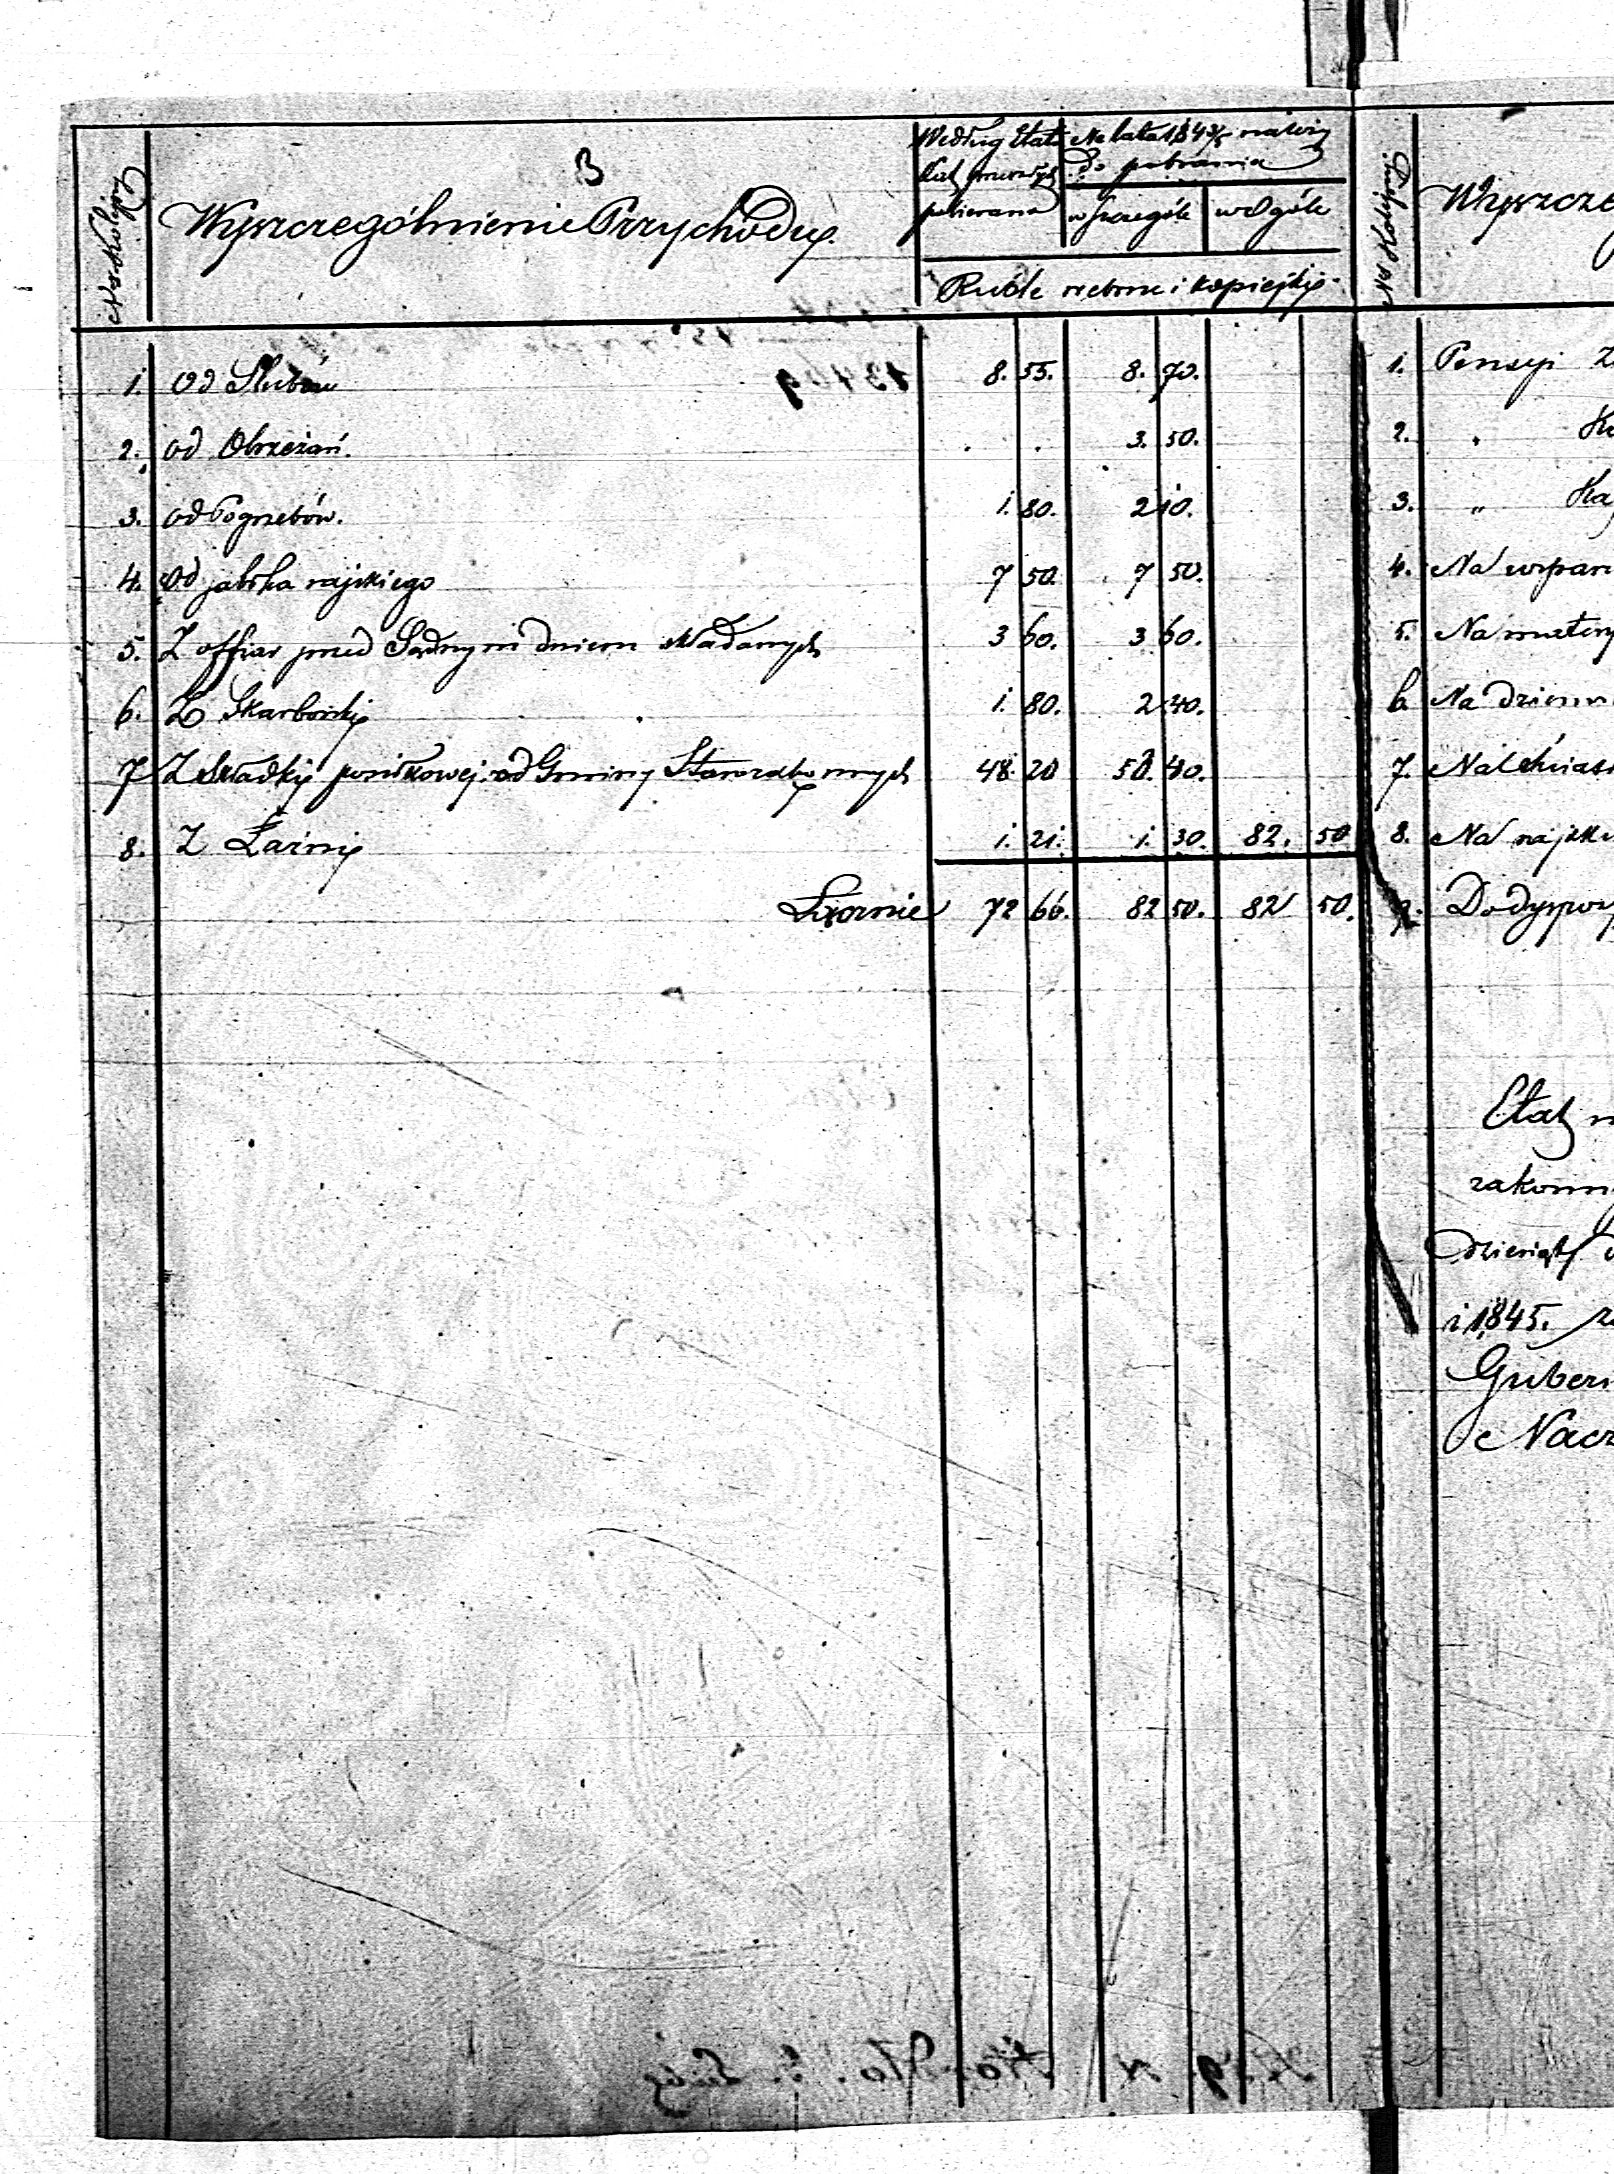 B
Wyszczególnienie Przychodu.
Według Etatu
lat przeszłych
pobierano
Na lata 1843/5 należy
do pobrania
w szczególe
w Ogóle
Ruble srebrne i kopiejki
1. Od Slubów 8. 55. 8. 70.
2. od Obrzezań. . . 3. 50.
3. od Pogrzebów. 1. 80. 2 10.
4. Od jabłka rajskiego 7 50 7 50.
5. Z offiar przed Sądnym dniem składanych 3 60. 3 60.
6. Z Skarbonki 1. 80. 2 40.
7 Z Składki posiłkowej od Gminy Starozakonnych 48. 20 50. 40.
8. Z Łaźni 1. 21. 1. 30. 82. 50
Łącznie 72 66. 82 50. 82 50.
Wyszcze
1. Pensyi
2.
3. "
4. Na wspar
5. Na
6. Na
7. Na
8. Na
Etat
zakonn
dziesiąt
i 1845.
Gubern
Nacz